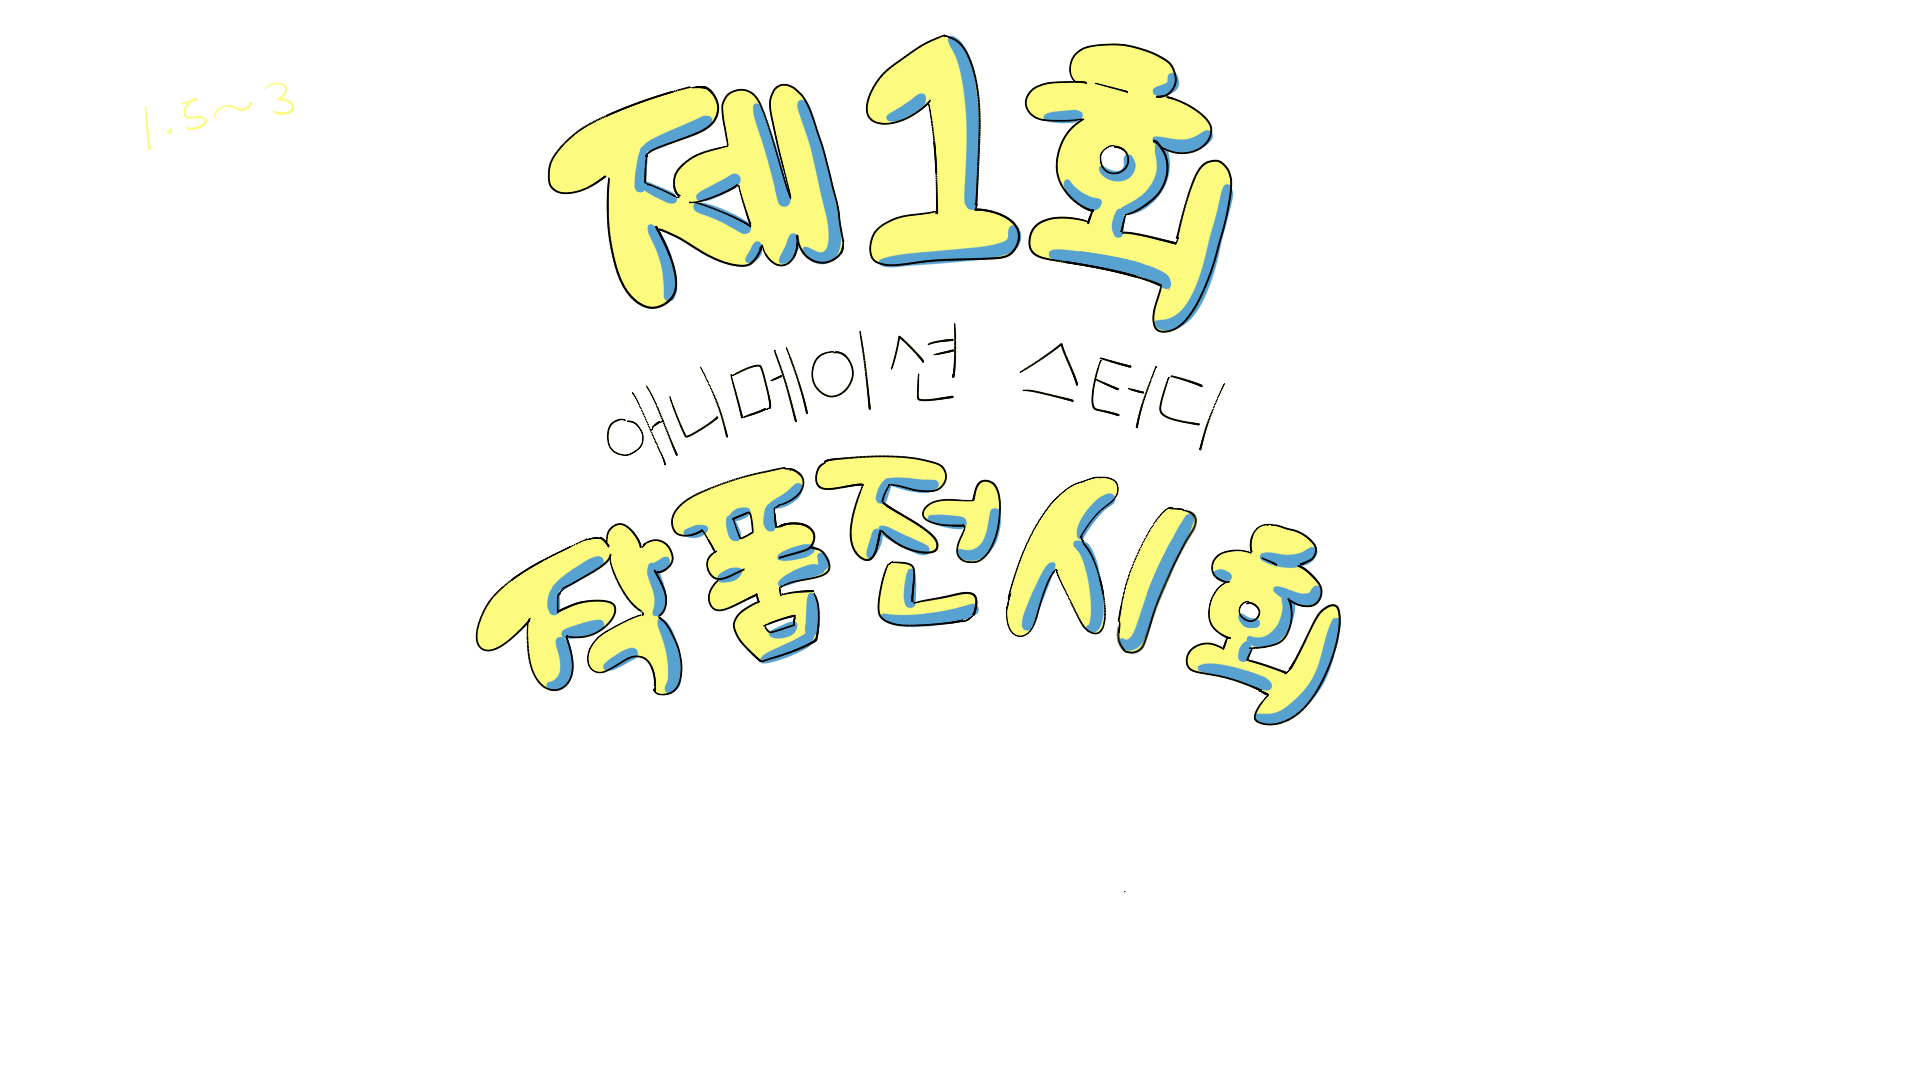 1.5~3
제1회
애니메이션 스터디
작품전시회